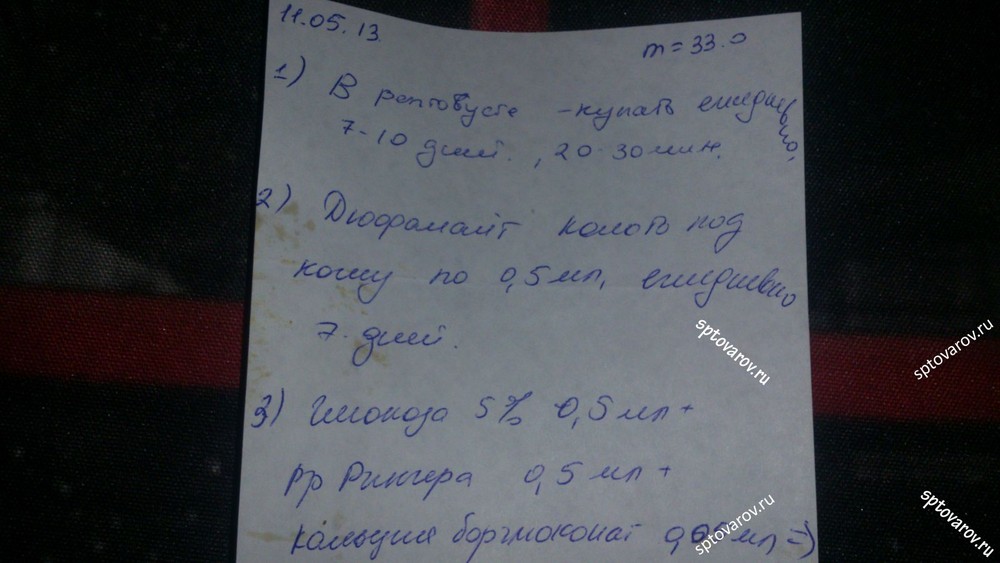 11.05.13
m = 33.0
1) В рептовусте - купать ежедневно,
7-10 дней. , 20-30 мин.
2) Дюфалайт колоть под
кожу по 0,5 мл, ежедневно
7 дней.
3) Глюкоза 5% 0,5 мл +
рр Рингера 0,5 мл +
кальция борглюконат мл =)
sptovarov.ru
sptovarov.ru
sptovarov.ru
sptovarov.ru